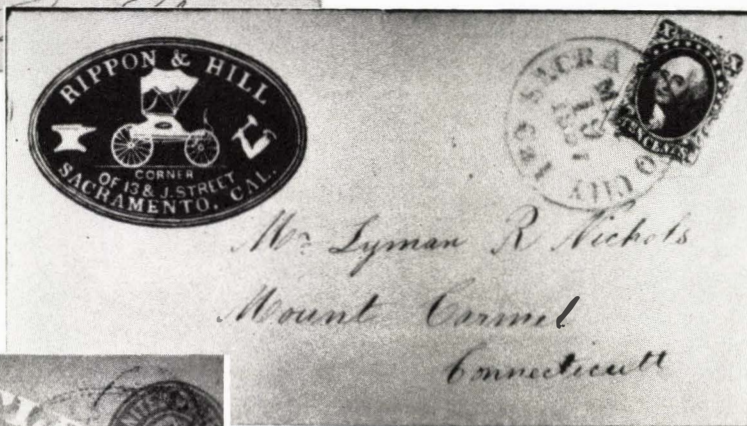 RIPPON & HILL
CORNER
OF 13 & J. STREET
SACRAMENTO, CAL.
1857
TEN CENTS
Mr. Lyman R Nichols
Mount Carmel
Connecticutt